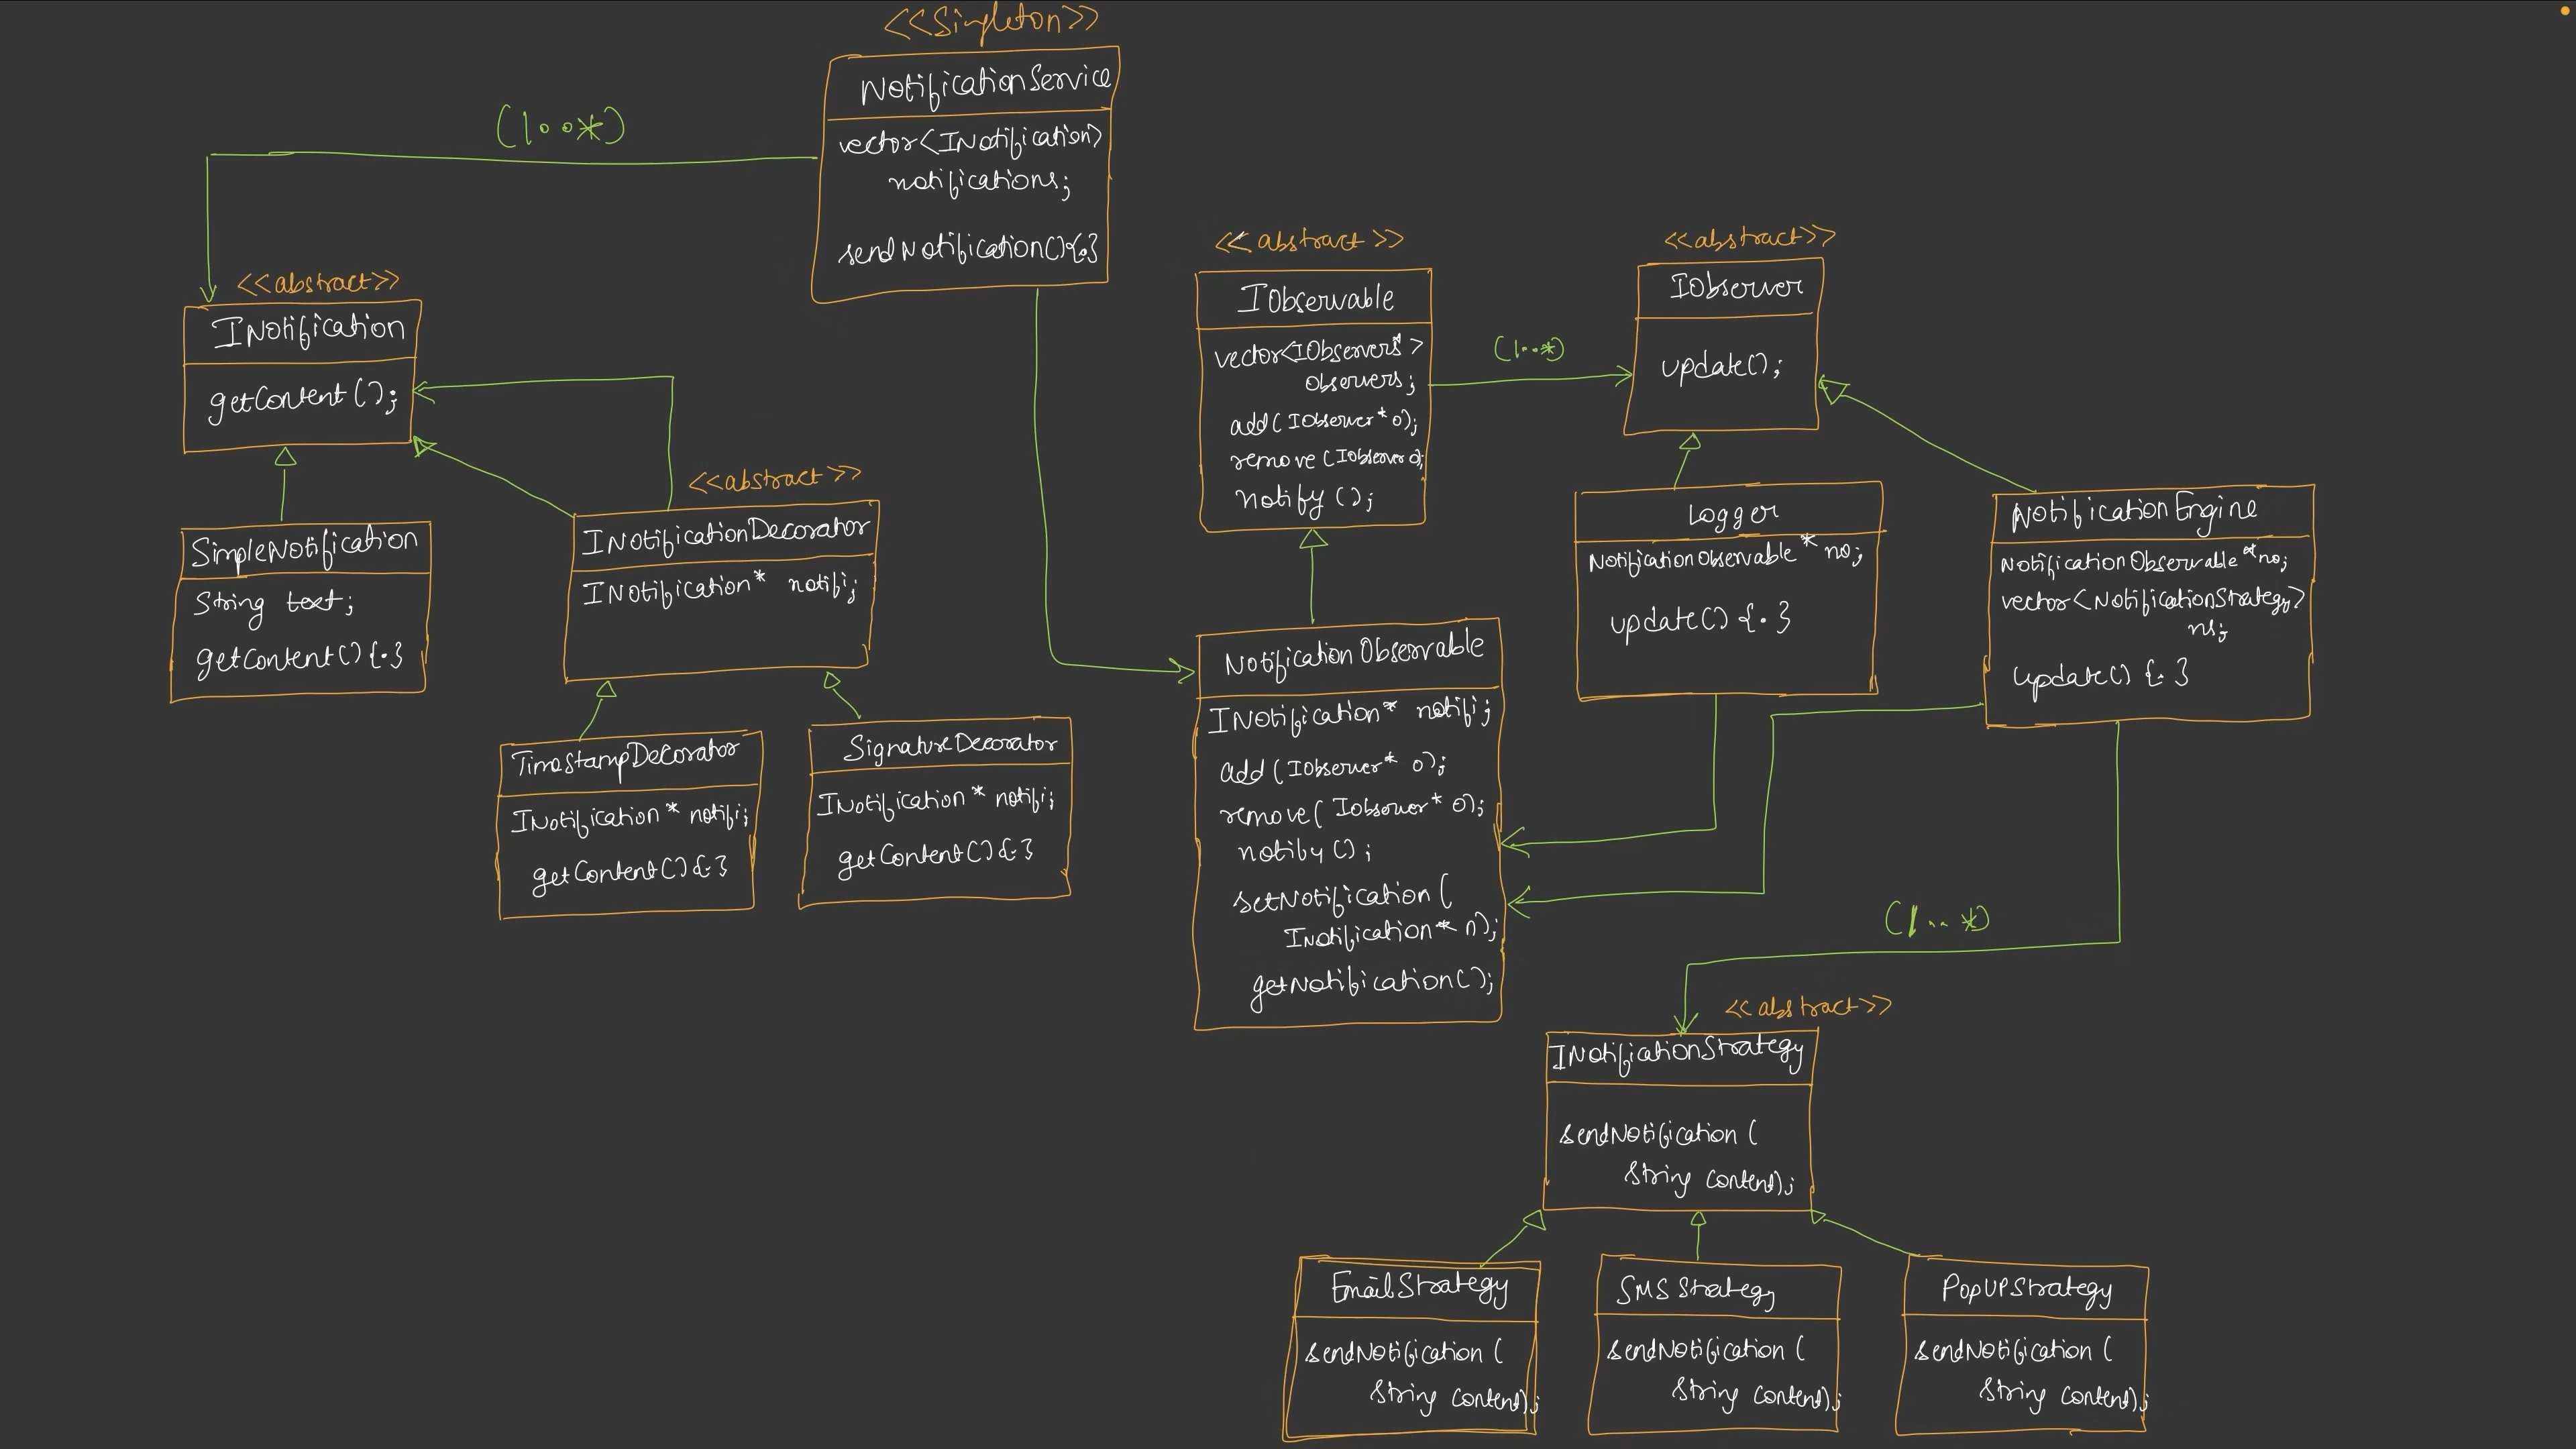 <<Singleton>>
NotificationService
vector<INotification>
notifications;
sendNotification(){.}
(1..*)
<<abstract>>
INotification
getContent();
SimpleNotification
String text;
getContent(){.}
<<abstract>>
INotificationDecorator
INotification* notifi;
TimeStampDecorator
INotification* notifi;
getContent(){.}
SignatureDecorator
INotification* notifi;
getContent(){.}
<<abstract>>
IObservable
vector<IObservers*>
observers;
add(IObserver* o);
remove(IObserver o);
notify();
(1..*)
<<abstract>>
IObserver
update();
Logger
NotificationObservable* no;
update(){.}
NotificationEngine
NotificationObservable *no;
vector<NotificationStrategy>
ns;
update(){.}
NotificationObservable
INotification* notifi;
add(IObserver* o);
remove(IObserver* o);
notify();
setNotification(
INotification* n);
getNotification();
(1..*)
<<abstract>>
INotificationStrategy
sendNotification(
String content);
EmailStrategy
sendNotification(
String content);
SMSStrategy
sendNotification(
String content);
PopUPStrategy
sendNotification(
String content);